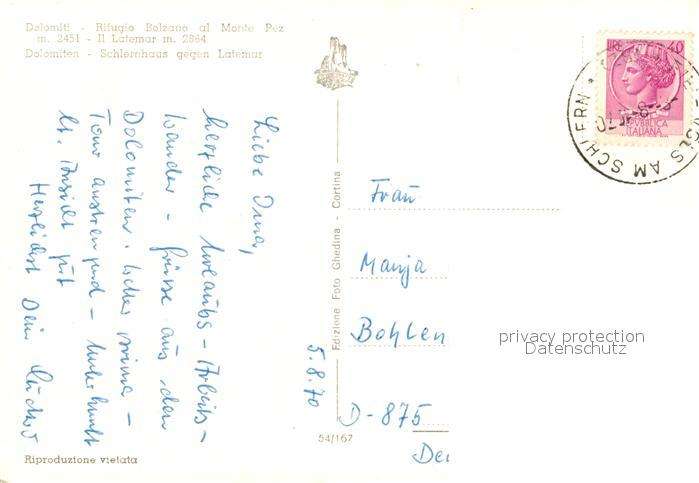 Dolomiti - Rifugio Bolzano al Monte Pez
m. 2451 - Il Latemar m. 2864
Dolomiten - Schlernhaus gegen Latemar
Liebe Oma,
herzliche Urlaubs - Arbeits-
wander - Grüsse aus den
Dolomiten. prima -
Tour anstrengend - Unterkunft
lt. Ansicht gut
Herzlichst Dein
5.8.70
Edizione Foto Ghedina - Cortina
54/167
Riproduzione vietata
LIRE 40
REPUBBLICA
ITALIANA
AM SCHLERN
Frau
Manja
Bohlen
D-875
privacy protection
Datenschutz